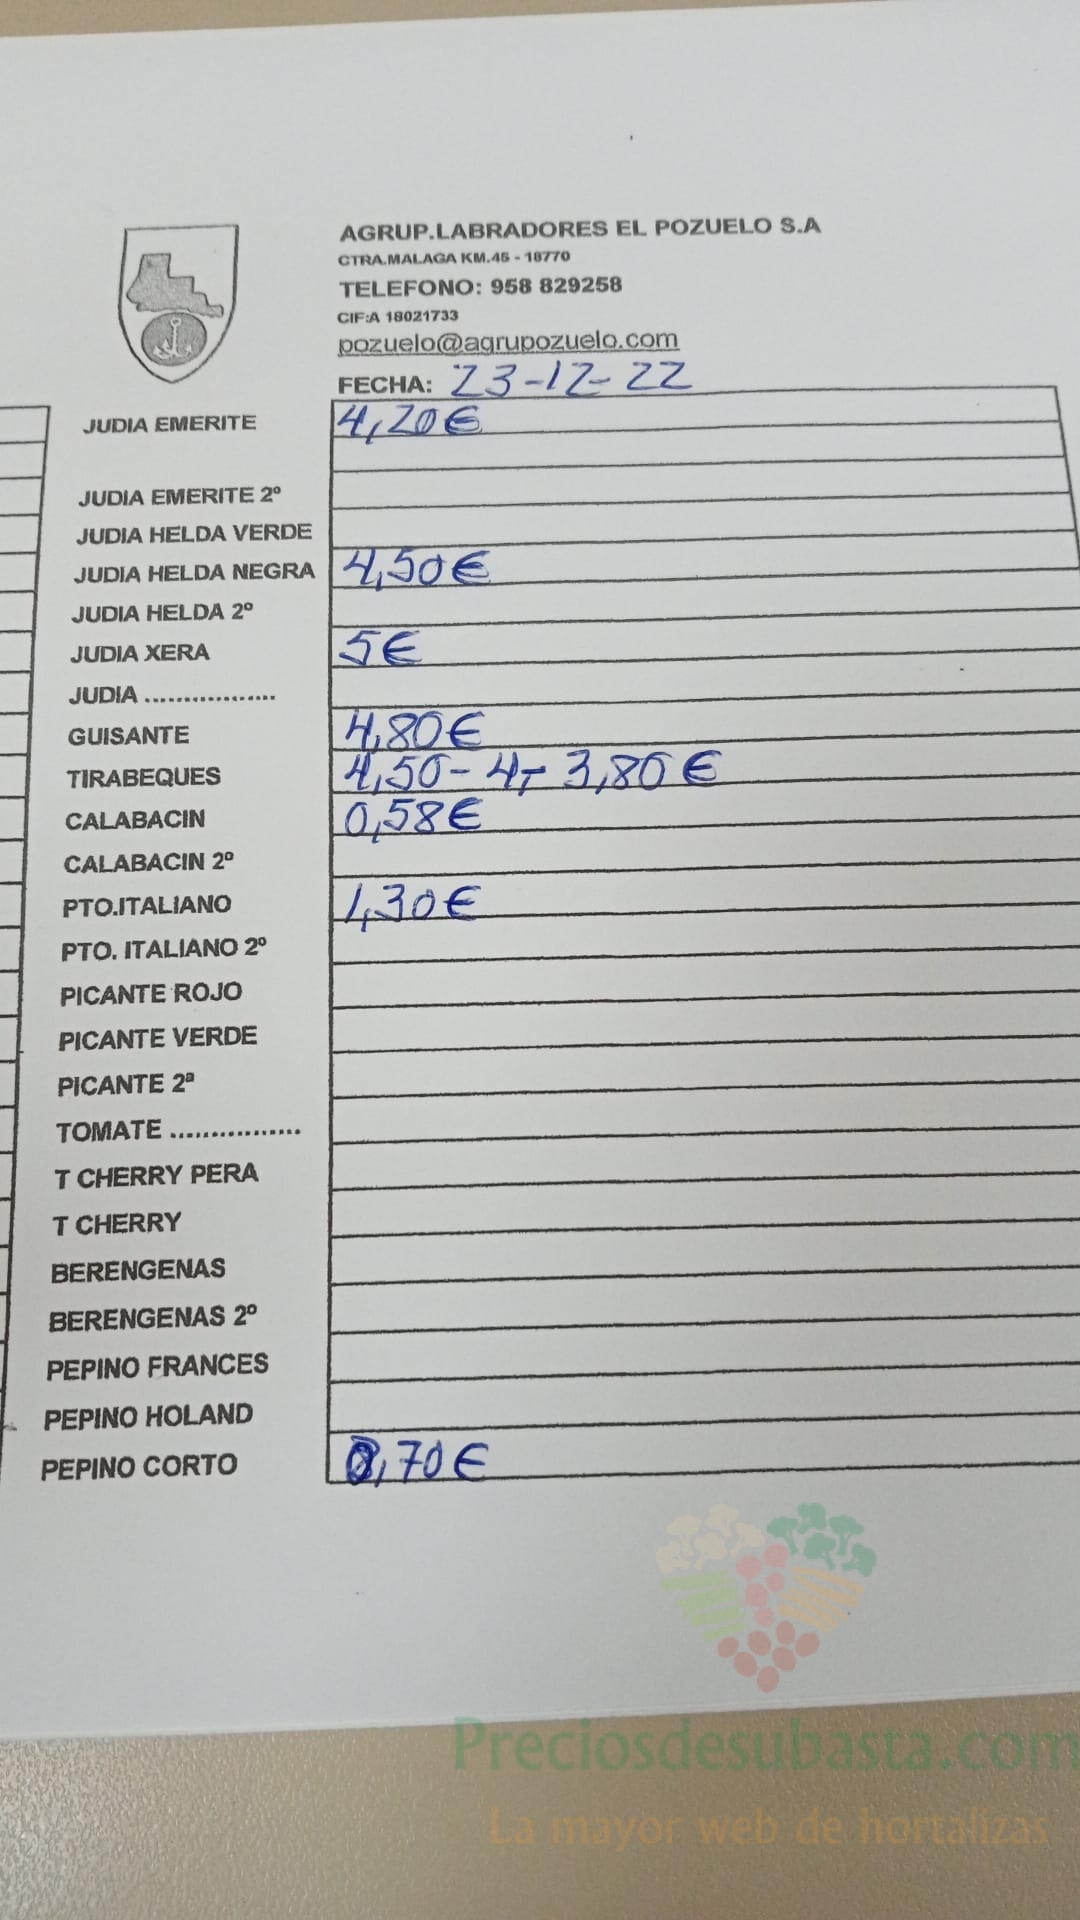 AGRUP.LABRADORES EL POZUELO S.A
CTRA.MALAGA KM.45 - 18770
TELEFONO: 958 829258
CIF:A 18021733
pozuelo@agrupozuelo.com
FECHA: 23-12-22
JUDIA EMERITE 4,20€
JUDIA EMERITE 2º
JUDIA HELDA VERDE
JUDIA HELDA NEGRA 4,50€
JUDIA HELDA 2º
JUDIA XERA 5€
JUDIA ..................
GUISANTE 4,80€
TIRABEQUES 4,50- 4,- 3,80€
CALABACIN 0,58€
CALABACIN 2º
PTO.ITALIANO 1,30€
PTO. ITALIANO 2º
PICANTE ROJO
PICANTE VERDE
PICANTE 2ª
TOMATE ................
T CHERRY PERA
T CHERRY
BERENGENAS
BERENGENAS 2º
PEPINO FRANCES
PEPINO HOLAND
PEPINO CORTO 0,70€
Preciosdesubasta.com
La mayor web de hortalizas